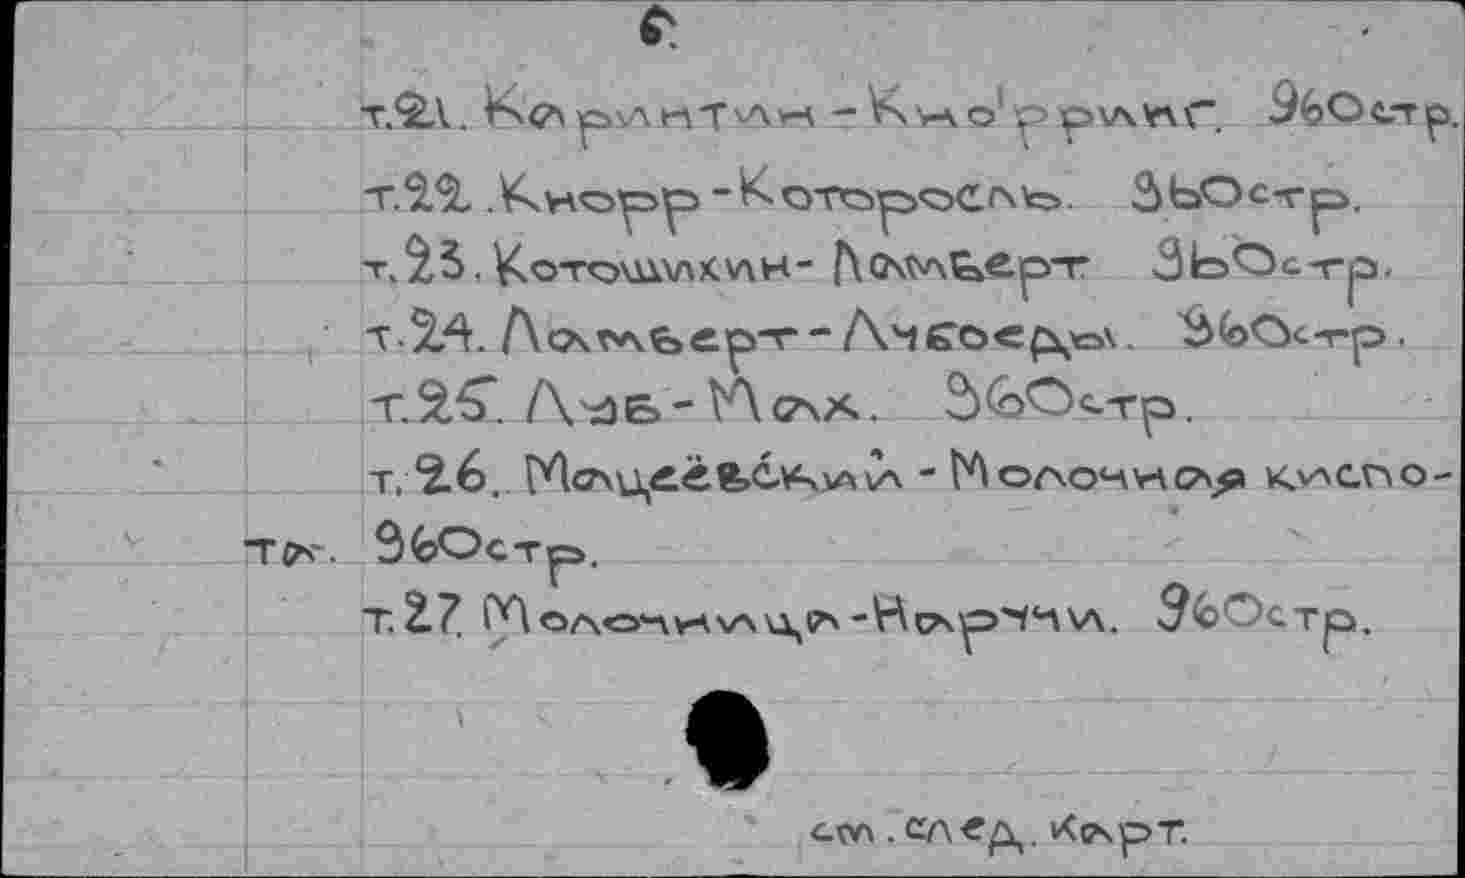 6.
т.21. Карпитин - Кно'рринг. Э(b)Остр.
т.22. Кнорр - Которосль. ЭbОстр.
т.23. Котошихин - Ламберт ЭbОстр.
т.24. Ламберт - Лчбоеды. ЭbОстр.
т.25. Льв - Мах. ЭbОстр.
т.26. Мацеёвский - Молочная кисло-
та. ЭbОстр.
т.27. Молочница - Нарчи. ЭbОстр.
см. след. карт.